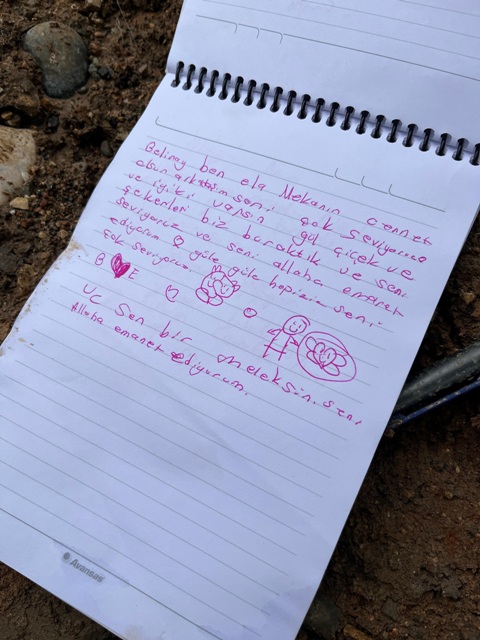 Belinay ben ela Mekanın cennet
olsun arkadaşım seni çok seviyorum
ve iyiki varsın gül çiçek ve
şekerleri biz bıraktık ve seni
seviyoruz ve seni allaha emanet
ediyorum güle güle hepimiz seni
çok seviyoruz
B E
UC sen bir meleksin. seni
Allaha emanet ediyorum.
Avansas